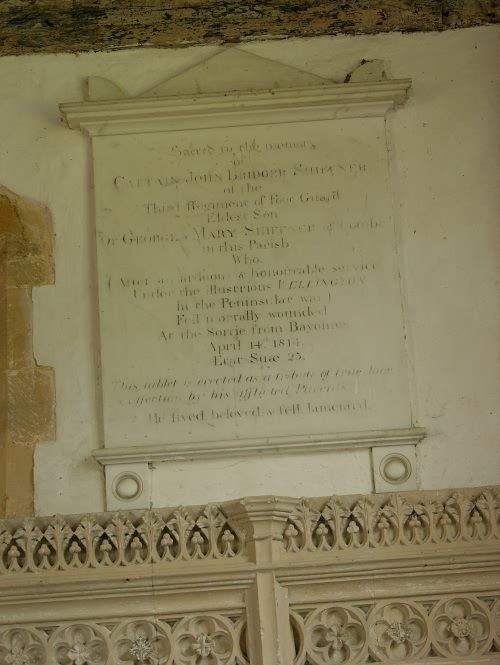 Sacred to the memory
of
CAPTAIN JOHN BRIDGER SHIFFNER
of the
Third Regiment of Foot Guard
Eldest Son
OF GEORGE & MARY SHIFFNER of Coombe
in this Parish
Who
(After an arduous & honourable service
Under the illustrious WELLINGTON
In the Peninsular war)
Fell mortally wounded
At the Sortie from Bayonne
April 14th 1814.
Ætat Suæ 25.
This tablet is erected as a tribute of true love
& affection by his afflicted Parents
He lived beloved & fell lamented.